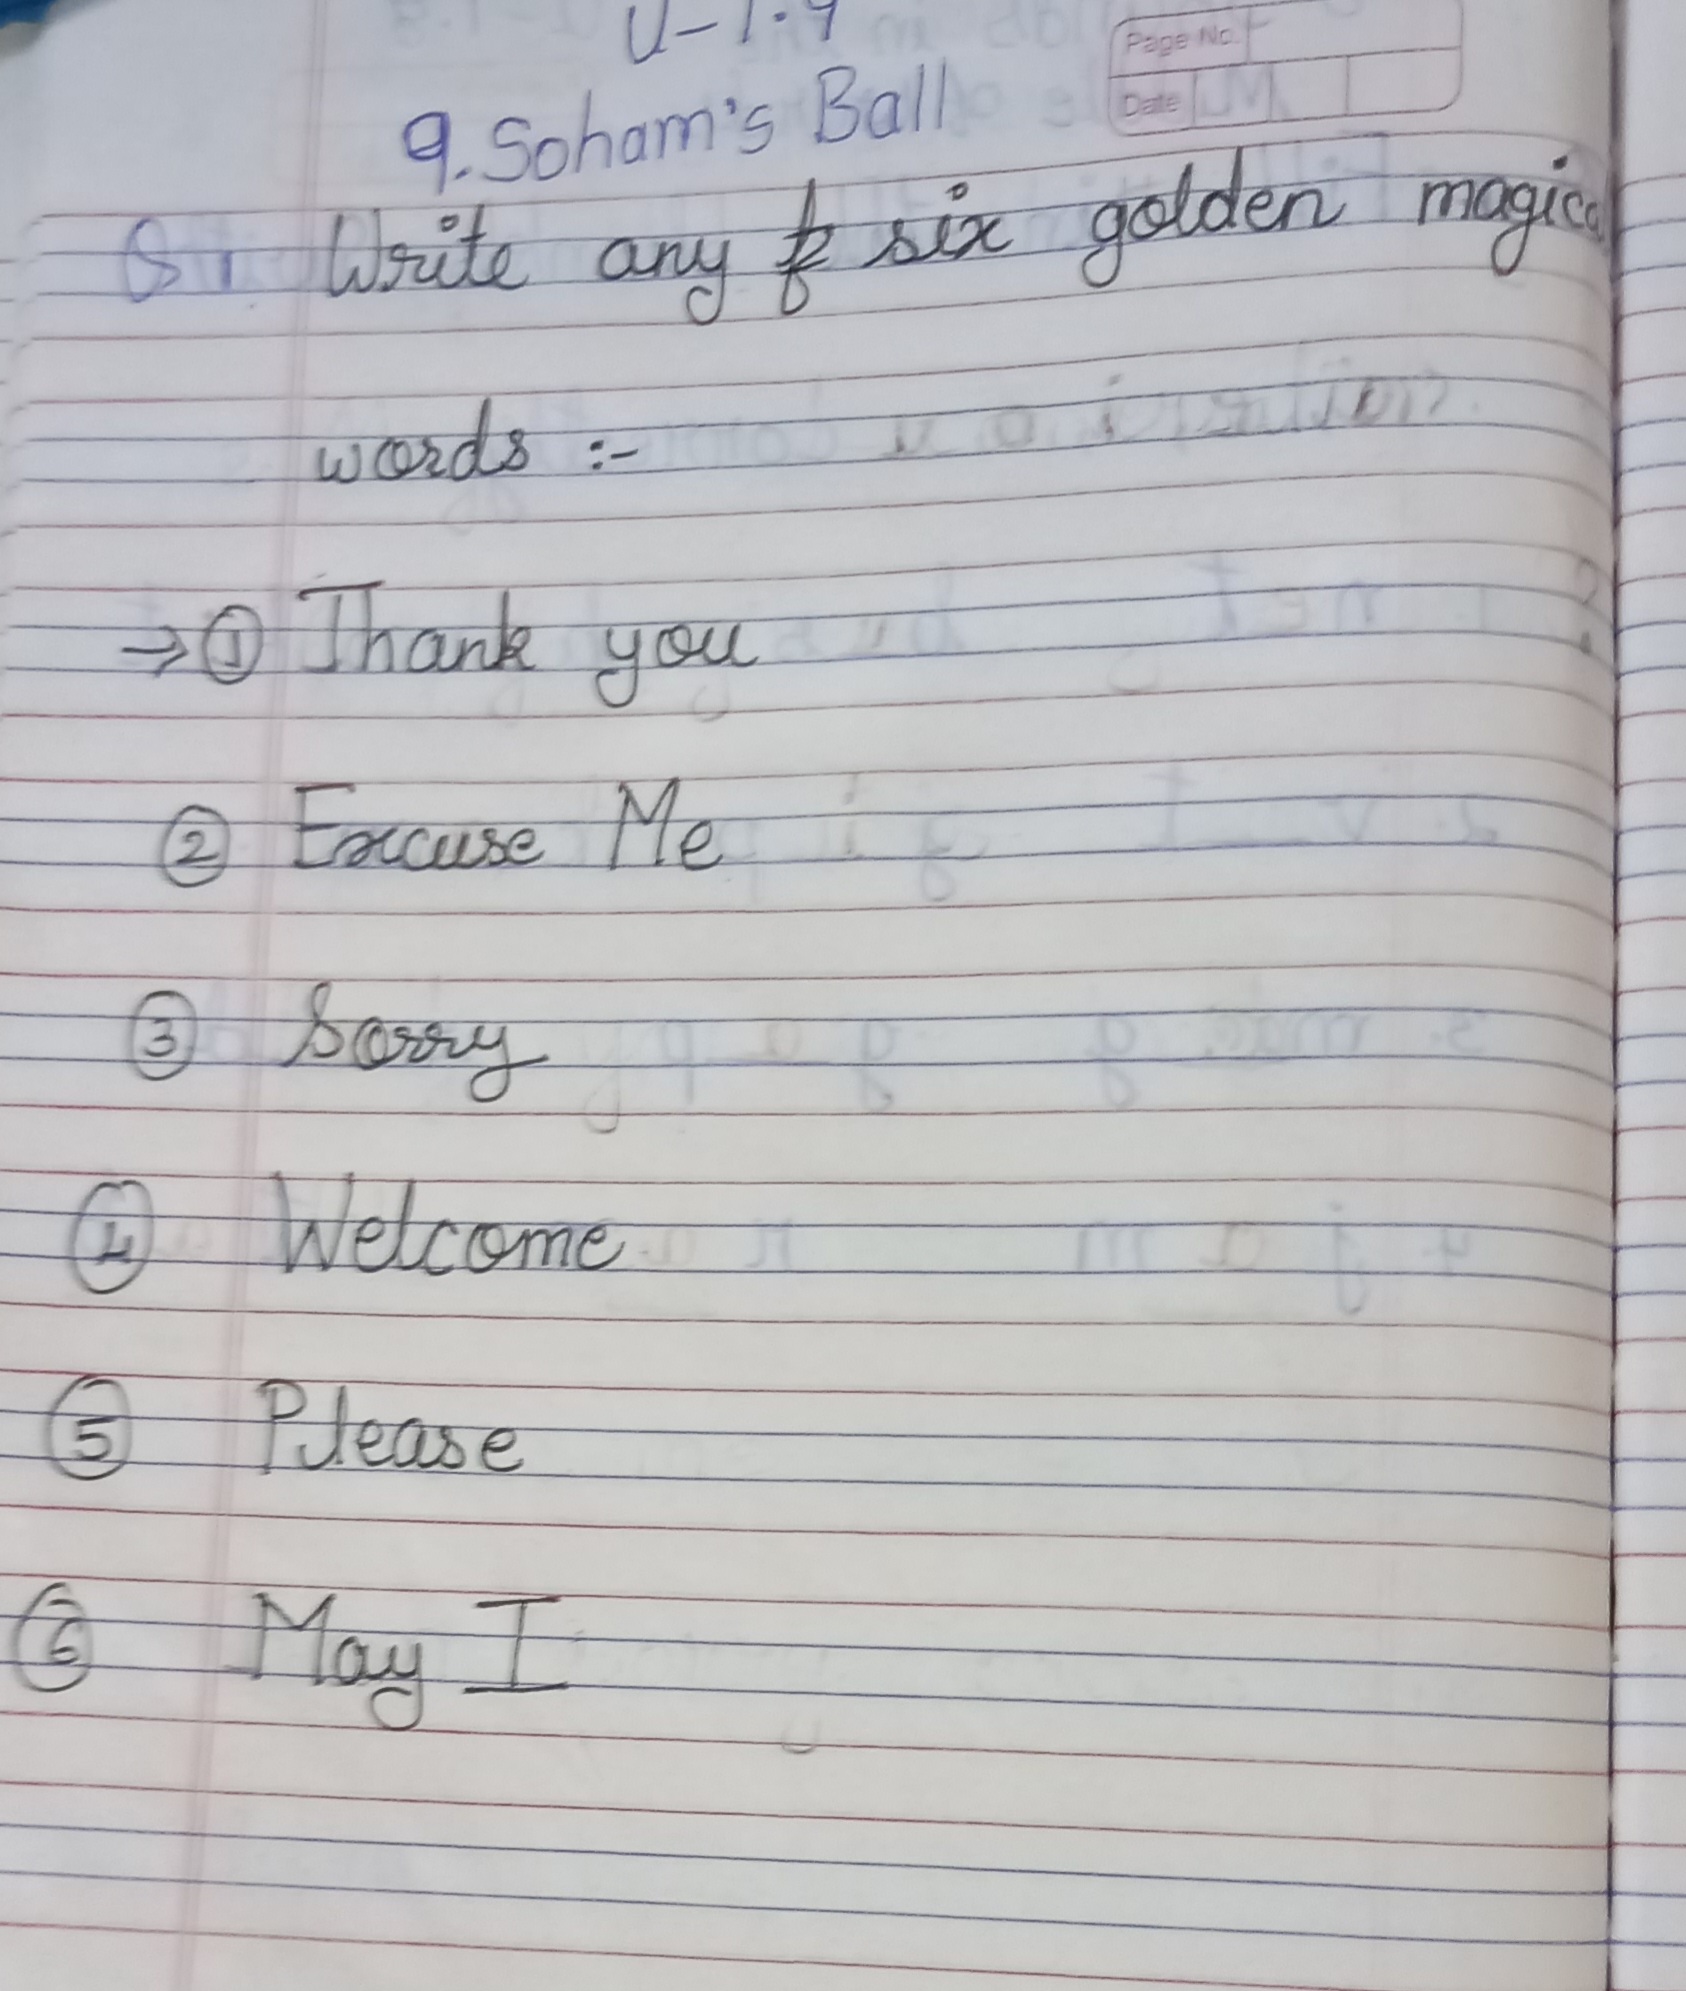 U-1.9
Page No.
Date
9. Soham's Ball
Q1 Write any six golden magical
words :-
→ ① Thank you
② Excuse Me
③ Sorry
④ Welcome
⑤ Please
⑥ May I